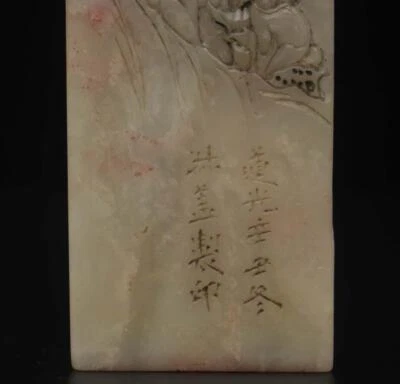 道光辛丑冬
洪盖製印